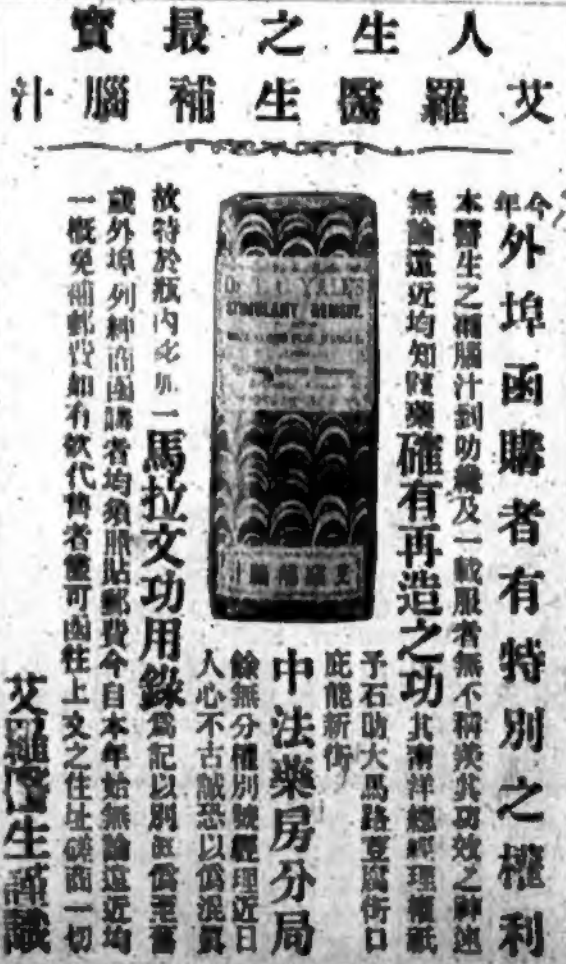 人生之最寶
艾羅醫生補腦汁
今年外埠函購者有特別之權利
本醫生之補腦汁到叻纔及一載服者無不稱羨其功效之神速
無論遠近均知賤藥確有再造之功其南洋總經理權祇
予石叻大馬路荳腐街口
庇能新街
中法藥房分局
餘無分權別號經理近日
人心不古誠恐以偽混真
故特於瓶內必加一馬拉文功用錄為記以別真偽至舊
歲外埠列紳商函購者均須照貼郵費今自本年始無論遠近均
一概免補郵費如有欲代售者儘可函往上文之住址磋商一切
艾羅醫生謹識
YALE'S
STIMULANT REMEDY.
艾羅補腦汁